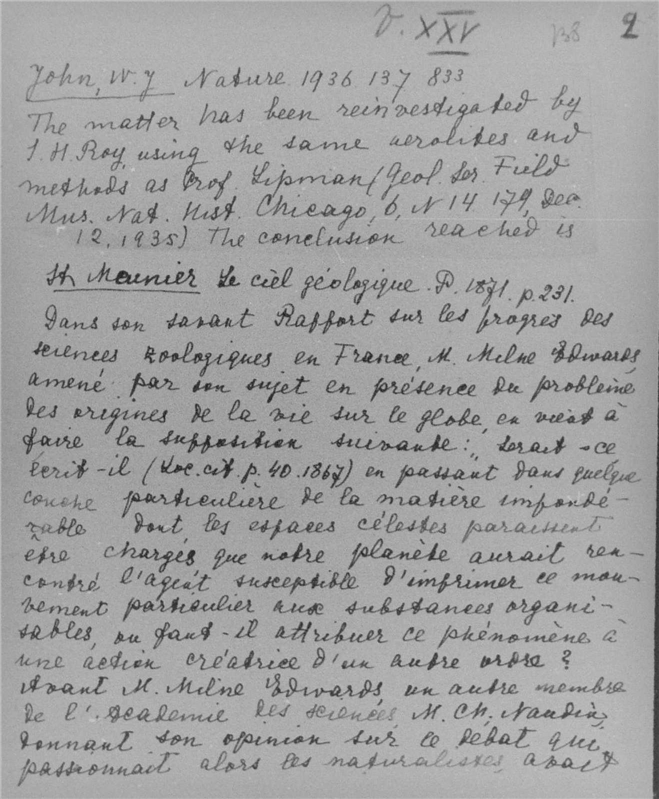 V. XXV 138 2
John, W. J Nature 1936 137 833
The matter has been reinvestigated by
S. H. Roy, using the same aerolites and
methods as Prof. Lipman (Geol. Ser. Field
Mus. Nat. Hist. Chicago, 6, N 14 179, Dec.
12, 1935) The conclusion reached is
St. Meunier Le ciel géologique. P. 1871. p. 231.
Dans son savant Rapport sur les progrès des
sciences zoologiques en France, M. Milne Edwards,
amené par son sujet en présence du problème
des origines de la vie sur le globe, en vient à
faire la supposition suivante: „ Serait-ce
écrit-il (Loc. cit. p. 40. 1867) en passant dans quelque
couche particulière de la matière impondé-
rable dont les espaces célestes paraissent
être chargés que notre planète aurait ren-
contré l'agent susceptible d'imprimer ce mou-
vement particulier aux substances organi-
sables, ou faut-il attribuer ce phénomène à
une action créatrice d'un autre ordre?
Avant M. Milne Edwards, un autre membre
de l'Academie des sciences, M. Ch. Naudin,
donnant son opinion sur le débat qui
passionnait alors les naturalistes, avait